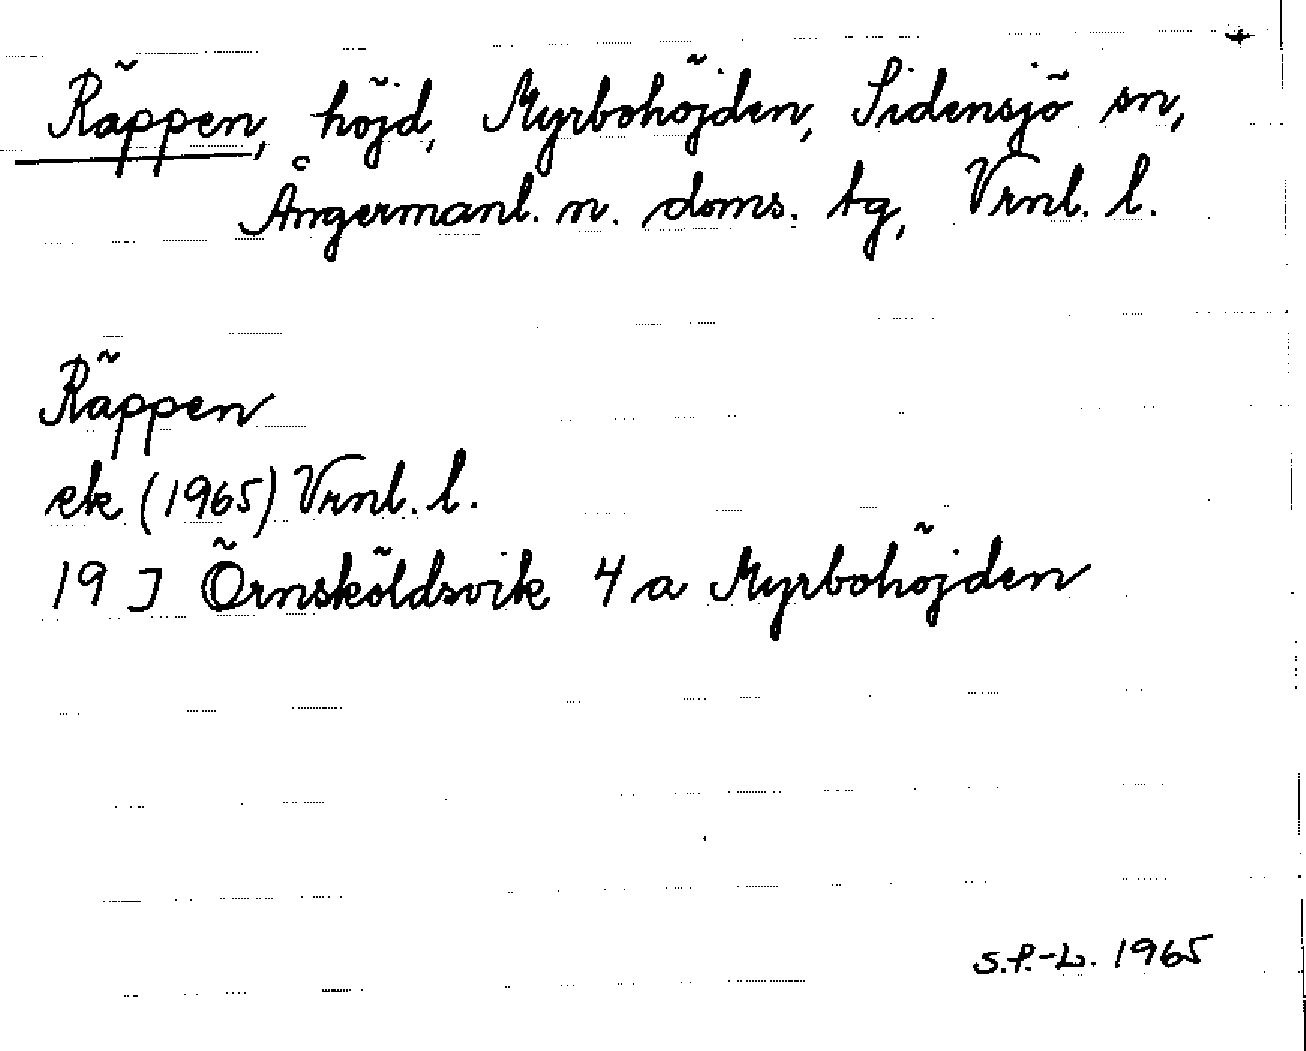 Räppen, höjd, Myrbohöjden, Sidensjö sn,
Ångermanl. n. doms. tg, Vrnl. l.
Räppen
ek (1965) Vrnl. l.
19 J Örnsköldsvik 4 a Myrbohöjden
S.P.-L. 1965